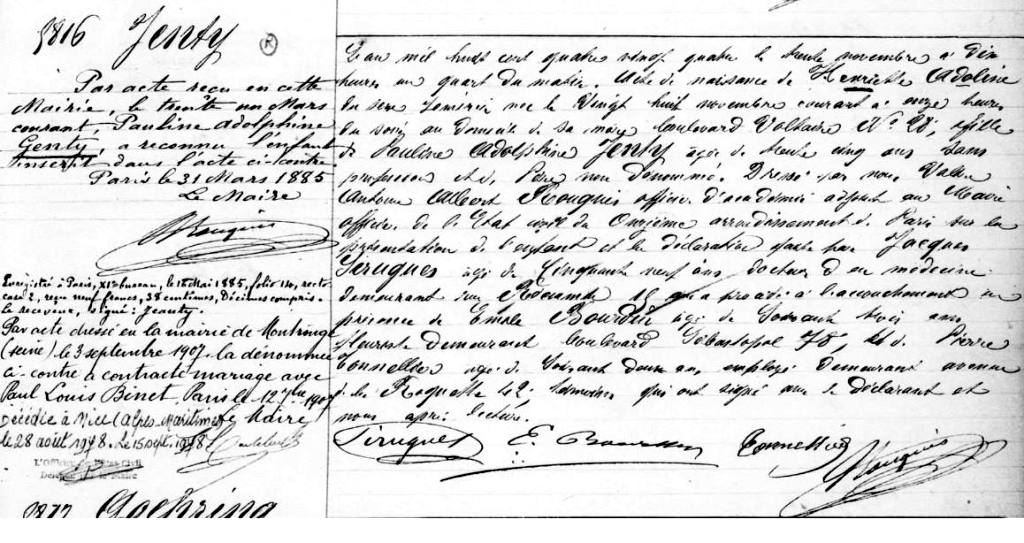 3816 Jenty R
Par acte reçu en cette
Mairie, le trente un Mars
courant, Pauline Adolphine
Genty, a reconnu l'enfant
inscrit dans l'acte ci-contre
Paris le 31 Mars 1885
Le Maire
Enregistré à Paris, XIe bureau, le 18 Mai 1885, folio 114, recto
case 2, reçu neuf francs, 38 centimes, décimes compris.
Le receveur, signé: Jeanty.
Par acte dressé en la mairie de Montrouge
(Seine) le 3 septembre 1907, la dénommée
ci-contre a contracté mariage avec
Paul Louis Binet, Paris le 12 7bre 1907
Le Maire
Décédée à Nice (Alpes-Maritimes)
le 28 août 1978. Le 15 sept. 1978
L'Officier de l'Etat Civil
Délégué par le Maire
3817 Goehring
L'an mil huit cent quatre vingt quatre le trente novembre à dix
heures un quart du matin. Acte de naissance de Henriette Adoline
du sexe féminin née le Vingt huit novembre courant à onze heures
du soir, au domicile de sa mère boulevard Voltaire No 28, fille
de Pauline Adolphine Jenty âgée de trente cinq ans sans
profession et de Père non dénommé. Dressé par nous
Antoine Albert Rouquis officier d'académie adjoint au Maire
officier de l'Etat civil du Onzième arrondissement de Paris sur la
présentation de l'enfant et la déclaration faite par Jacques
Siruguet âgé de Cinquante neuf ans, docteur en médecine
demeurant rue 15 qui a procédé à l'accouchement en
présence de Emile âgé de Soixante trois ans,
fleuriste demeurant boulevard Sébastopol 78, et de Pierre
Tonnellier âgé de Soixante ans, employé demeurant avenue
de la Roquette 42; témoins qui ont signé avec le déclarant et
nous après lecture.
Siruguet E. Tonnellier